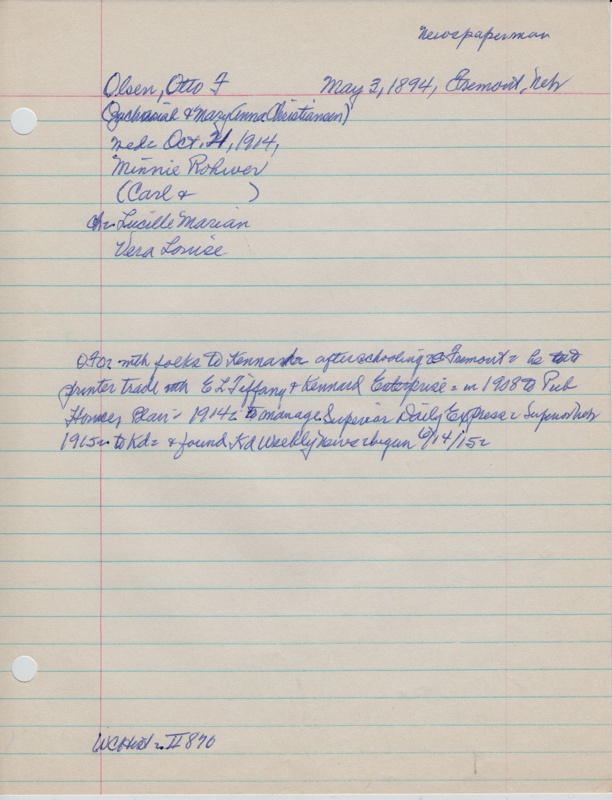 Newspaperman
Olsen, Otto F May 3, 1894, Fremont, Neb
(Zachariah & Mary Anna Christiansen)
wed= Oct. 21, 1914,
Minnie Rohwer
(Carl & )
Ch= Lucille Marian
Vera Louise
OFO= with folks to Kennard after schooling Fremont= he
printer trade with E L Tiffany & Kennard Enterprise= in 1908 to Pub
Blair= 1914= to manage Superior Daily Express= Superior Neb
1915= to Kd= & found Kd Weekly News= begun 6/14/15=
WCHist= II 870